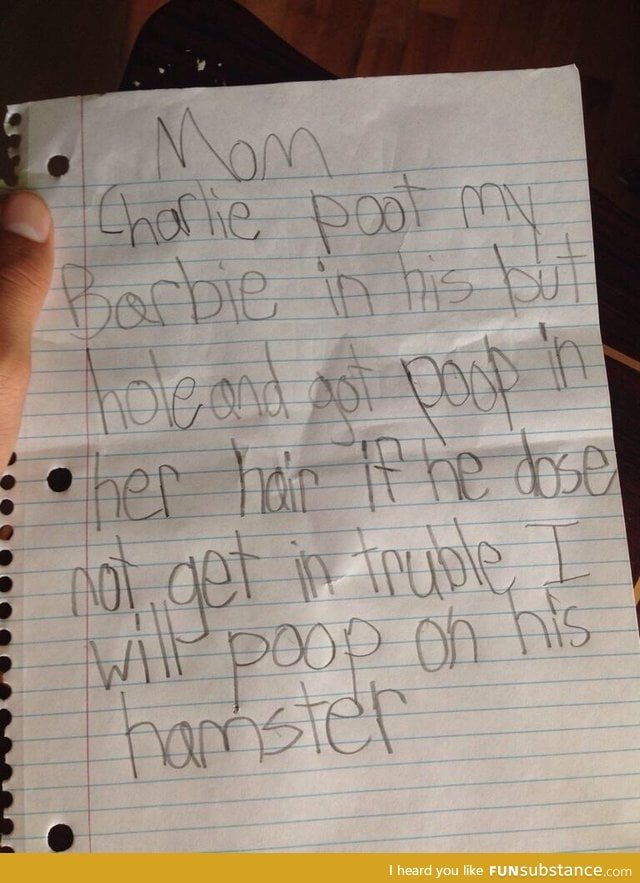 Mom
Charlie poot my
Barbie in his but
hole and got poop in
her hair if he dose
not get in truble I
will poop on his
hamster
I heard you like FUNsubstance.com